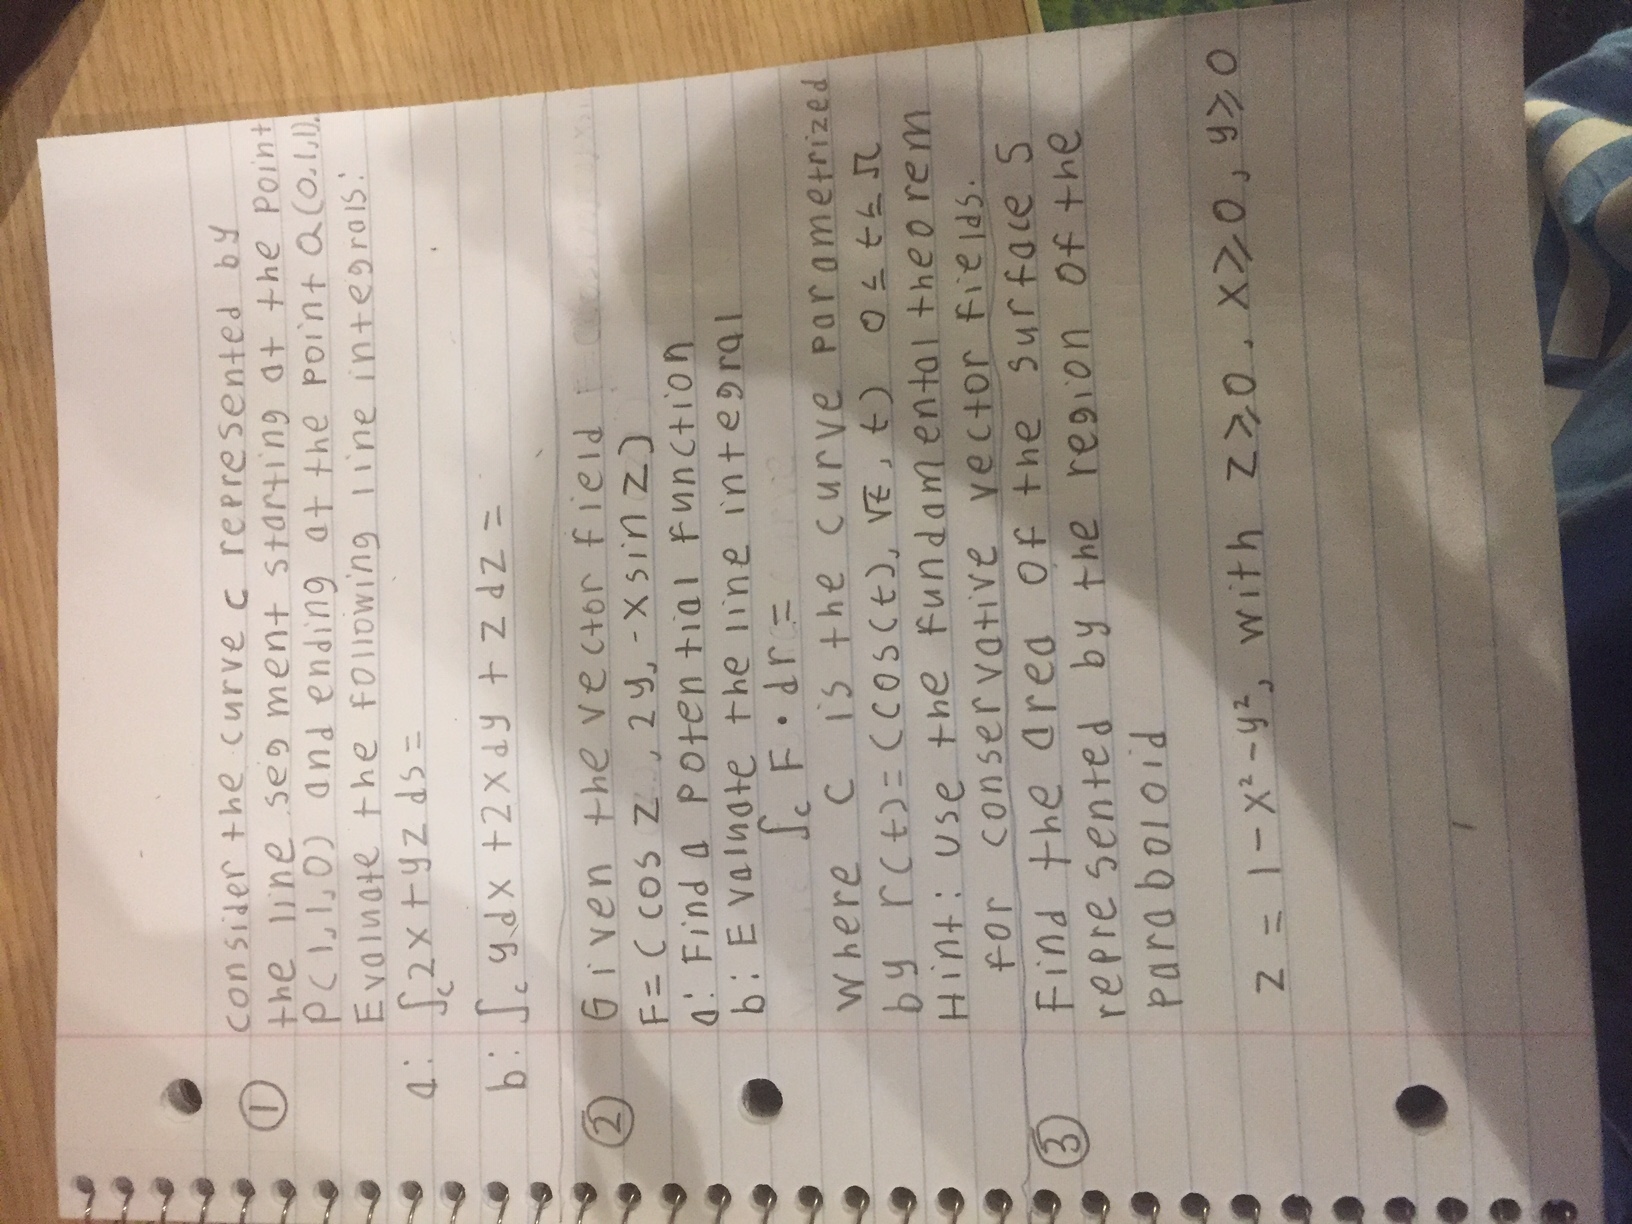 ① consider the curve c represented by
the line segment starting at the point
P(1,1,0) and ending at the point Q(0,1,1).
Evaluate the following line integrals:
a: ∫c 2x+yz ds=
b: ∫c ydx+2xdy+zdz=
② Given the vector field
F=(cos z, 2y, -x sin z)
a: Find a potential function
b: Evaluate the line integral
∫c F·dr=
where C is the curve parametrized
by r(t)=(cos(t), √t, t) 0≤t≤π
Hint: use the fundamental theorem
for conservative vector fields.
③ Find the area of the surface S
represented by the region of the
paraboloid
z=1-x²-y², with z≥0, x≥0, y≥0